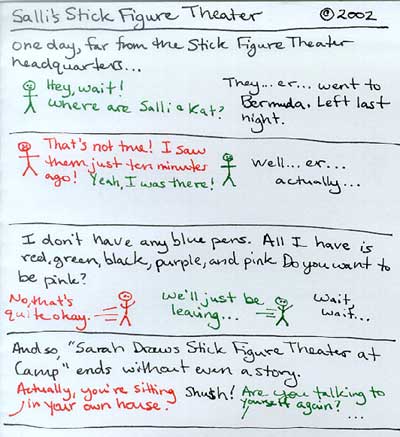 Salli's Stick Figure Theater © 2002
One day, far from the Stick Figure Theater
headquarters...
Hey, wait!
Where are Salli & Kat?
They... er... went to
Bermuda. Left last
night.
That's not true! I saw
them just ten minutes
ago! Yeah, I was there!
Well... er...
actually...
I don't have any blue pens. All I have is
red, green, black, purple, and pink Do you want to
be pink?
No, that's
quite okay.
We'll just be
leaving...
Wait,
wait...
And so, "Sarah Draws Stick Figure Theater at
Camp" ends without even a story.
Actually, you're sitting
in your own house.
Shush!
Are you talking to
yourself again?
...